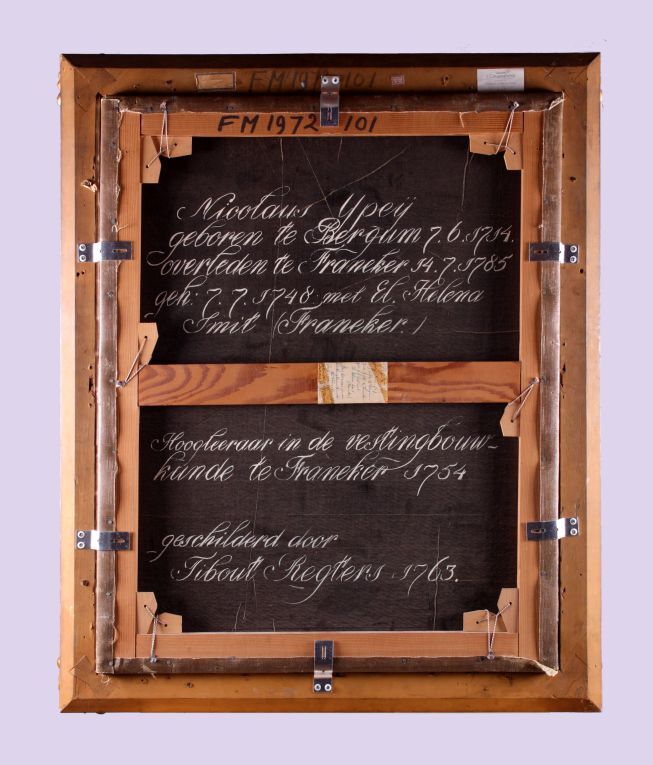 FM 1972 101
FM 1972 101
Nicolaus Ypeij
geboren te Bergum 7.6.1714.
overleden te Franeker 14.7.1785
geh: 7.7.1748 met El. Helena
Smit (Franeker.)
Hoogleeraar in de vestingbouw-
kunde te Franeker 1754
geschilderd door
Tibout Regters 1763.